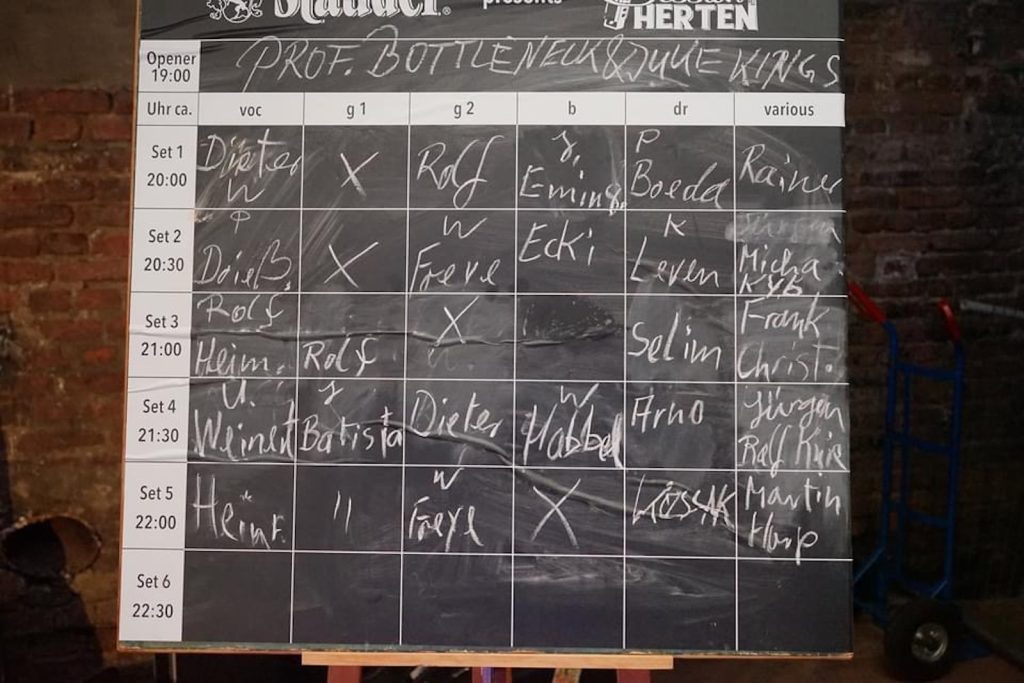 presents
HERTEN
Opener 19:00 PROF. BOTTLENECK & JUKE KINGS
Uhr ca. voc g 1 g 2 b dr various
Set 1 20:00 Dieter W X Rolf J. P Boeda Rainer
Set 2 20:30 P X W Freye Ecki K Leven Micha
Set 3 21:00 Rolf Heim. Rolf X Selim Frank Christ.
Set 4 21:30 U. Weinert J Batista Dieter W Habbel Arno Jürgen Ralf
Set 5 22:00 Hein " W Freye X Martin Harp
Set 6 22:30